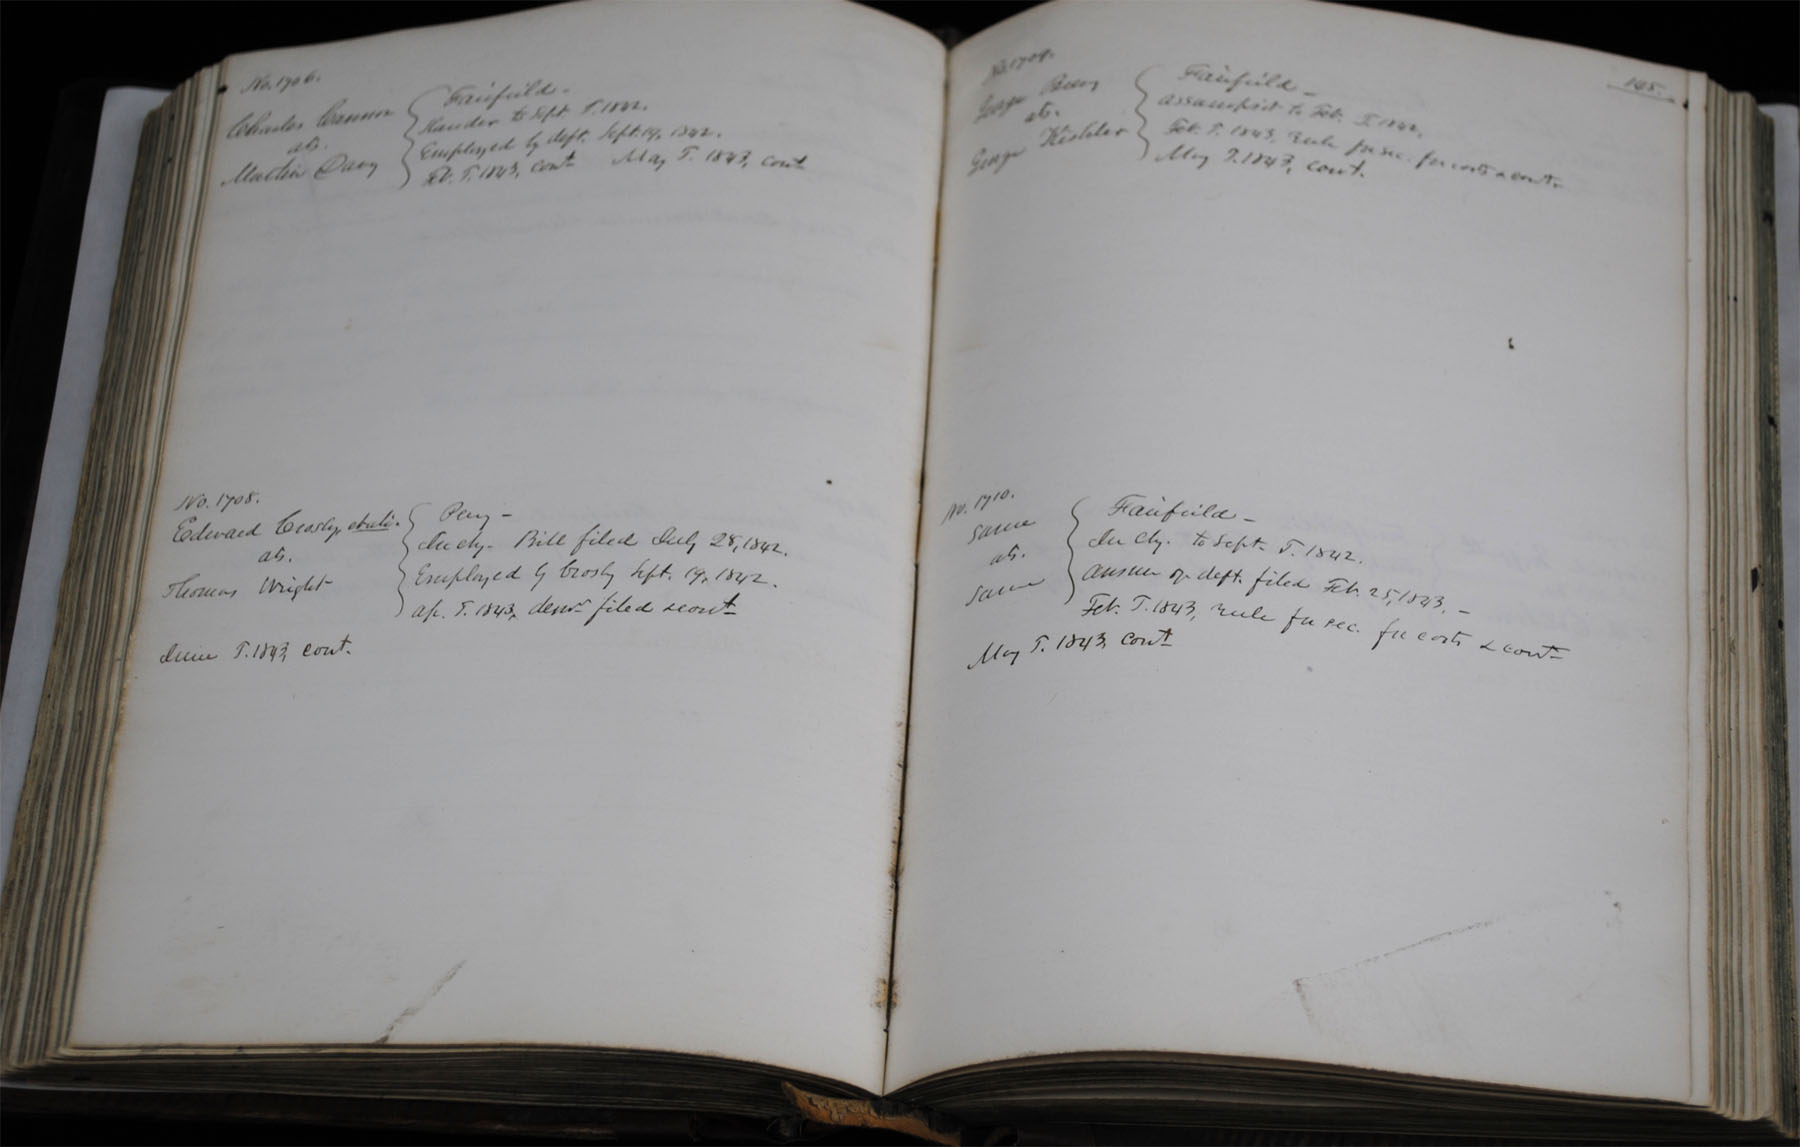 No. 1706.
Charles Cannon
ats.
Martin Davy
Fairfield -
Slander to Sept. T. 1842.
Employed by deft. Sept. 19, 1842.
Feb. T. 1843, cont May T. 1843, cont
No. 1708.
Edward Crosby, et ali.
ats.
Thomas Wright
Perry -
In chy. Bill filed July 28, 1842.
Employed by Crosby Sept. 19, 1842.
ap. T. 1843, demr. filed & cont
June T. 1843, cont.
145.
No. 1709.
George Beery
ats.
George Kishler
Fairfield -
assumpsit to Feb. T. 1842.
Feb. T. 1843, rule for sec. for costs & cont.
May T. 1843, cont.
No. 1710.
Same
ats.
Same
Fairfield -
In chy. to Sept. T. 1842.
answer of deft. filed Feb. 25, 1843. -
Feb. T. 1843, rule for sec. for costs & cont
May T. 1843, cont